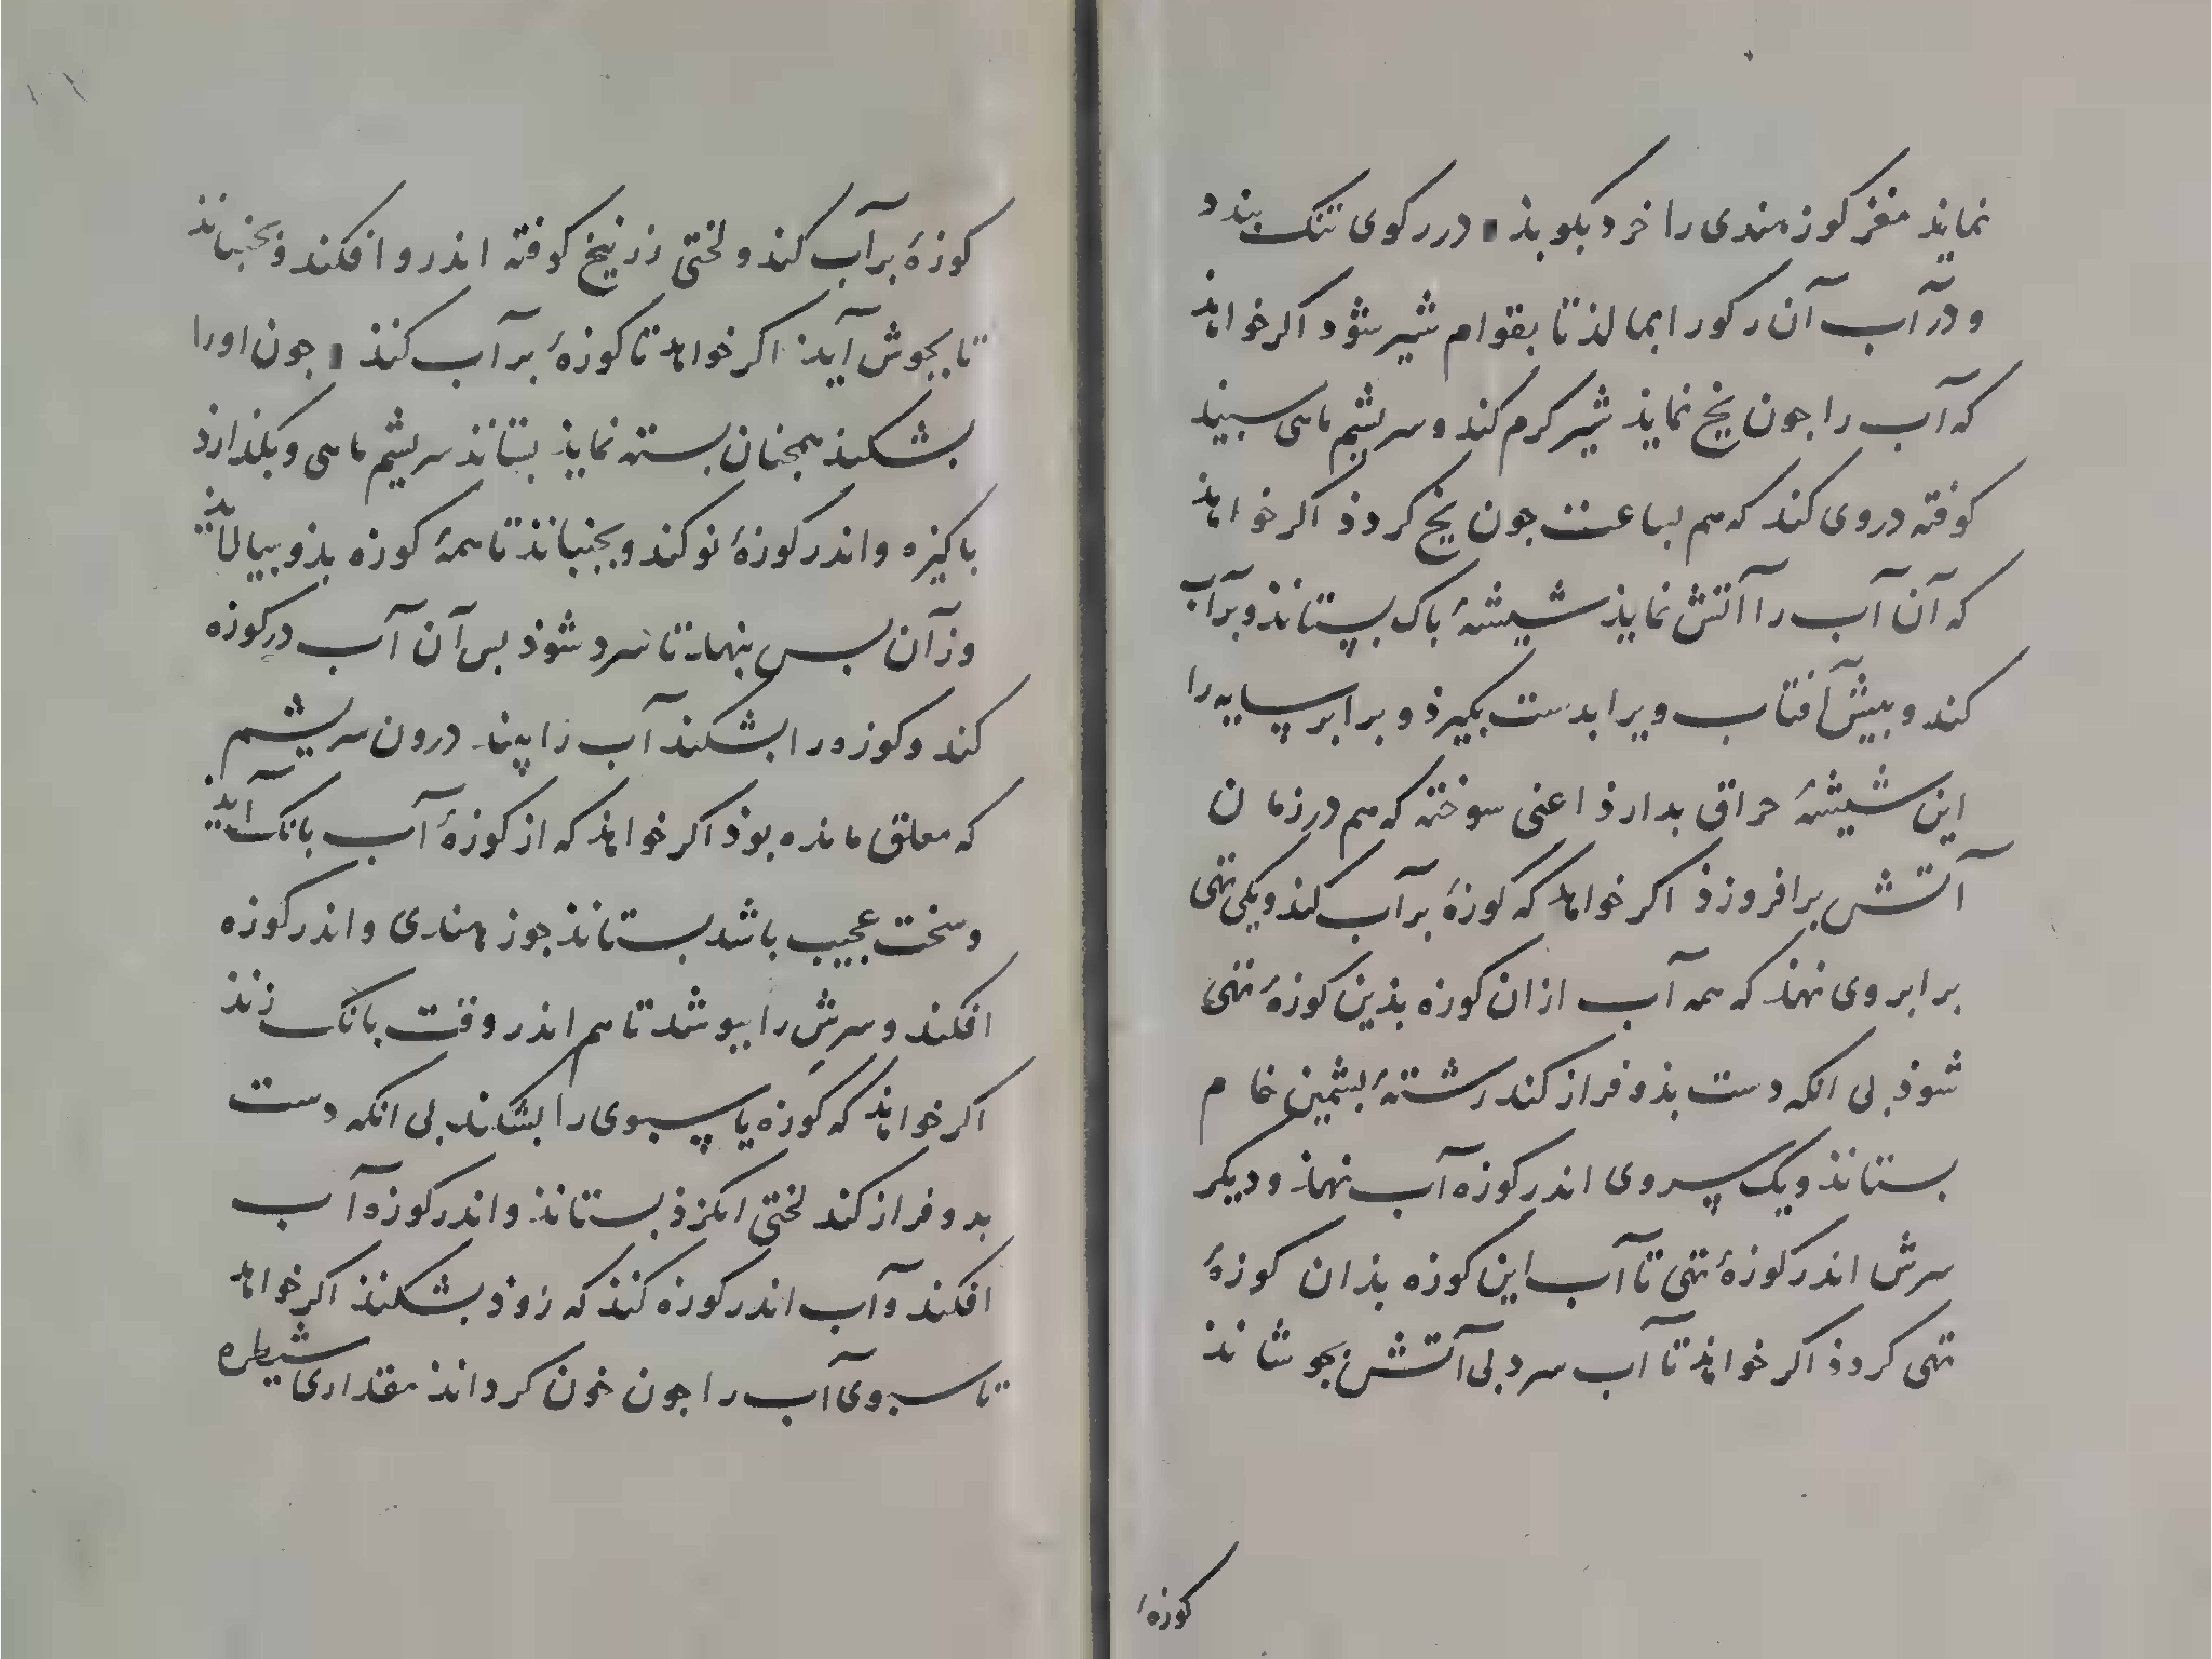 نماید مغز کوز هندی را خرد بکوبذ در رکوی تنک بندد
و در آب آن رکو را بمالذ تا بقوام شیر شود اکر خواهذ
که آب را جون یخ نمایذ شیر کرم کند و سریشم ماهی سبید
کوفته در وی کند که هم بساعت جون یخ کردذ اکر خواهذ
که آن آب را آتش نمایذ شیشهٔ باک بستاند و برآب
کند و بیش آفتاب ویرا بدست بکیرذ و برابر سایه را
این شیشهٔ حراق بدارذ اعنی سوخته که هم در زمان
آتش برافروزذ اکر خواهذ که کوزهٔ برآب کند و یکی تهی
برابر وی نهذ که همه آب ازان کوزه بذین کوزهٔ تهی
شوذ بی انکه دست بذو فراز کند رشتهٔ بشمین خام
بستانذ و یک سر وی اندر کوزه آب نهذ و دیکر
سرش اندر کوزهٔ تهی تا آب این کوزه بذان کوزهٔ
تهی کردذ اکر خواهذ تا آب سرد بی آتش بجوشانذ
کوزهٔ
کوزهٔ برآب کند و لختی زرنیخ کوفته اندرو افکند و بجنبانذ
تا بجوش آیذ اکر خواهذ تا کوزهٔ بر آب کنذ جون او را
بشکنذ همجنان بسته نمایذ بستانذ سریشم ماهی و بکذارذ
باکیزه و اندر کوزهٔ نو کند و بجنبانذ تا همهٔ کوزه بذو بیالایذ
وز آن بس بنهذ تا سرد شوذ بس آن آب در کوزه
کند و کوزه را بشکند آب را بیند درون سریشم
که معلق مانده بوذ اکر خواهذ که از کوزهٔ آب بانک آیذ
و سخت عجیب باشد بستانذ جوز هندی و اندر کوزه
افکند و سرش را ببوشد تا هم اندر وقت بانک زند
اکر خواهذ که کوزه یا سبوی را بشکند بی انکه دست
بدو فراز کند لختی انکزذ بستانذ و اندر کوزه آب
افکند و آب اندر کوزه کنذ که زوذ بشکنذ اکر خواهذ
تا سبوی آب را جون خون کرداند مقداری شیطره